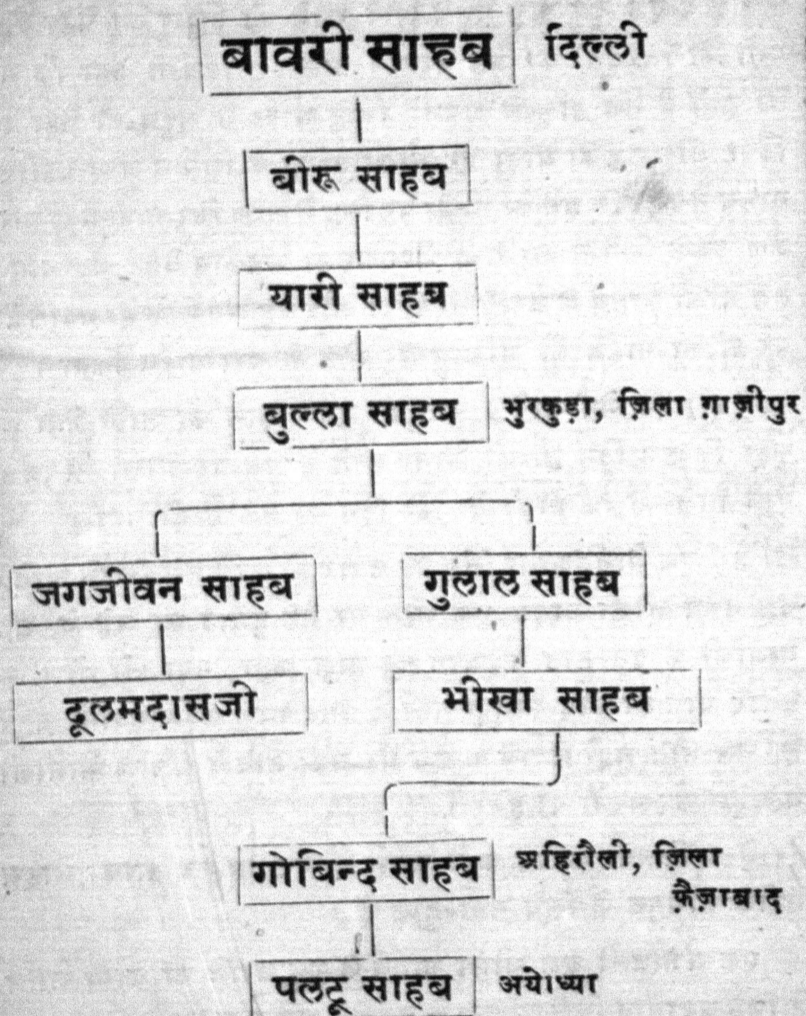 बावरी साहब दिल्ली
बीरू साहब
यारी साहब
बुल्ला साहब भुरकुड़ा, ज़िला ग़ाज़ीपुर
जगजीवन साहब गुलाल साहब
दूलमदासजी भीखा साहब
गोबिन्द साहब अहिरौली, ज़िला
फ़ैज़ाबाद
पलटू साहब अयोध्या